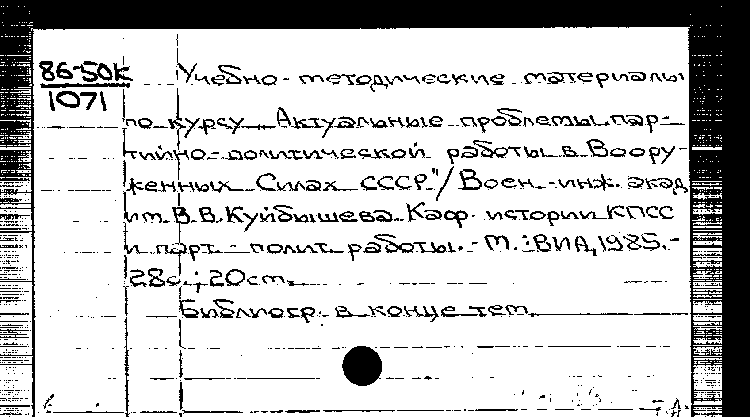 86-50к
1071
Учебно-методические материалы
по курсу „Актуальные проблемы пар-
тийно-политической работы в Воору-
женных Силах СССР"/ Воен.-инж. акад.
им. В. В. Куйбышева. Каф. истории КПСС
и парт.-полит. работы. - М.: ВИА, 1985.-
28с.; 20см.
Библиогр. в конце тем.